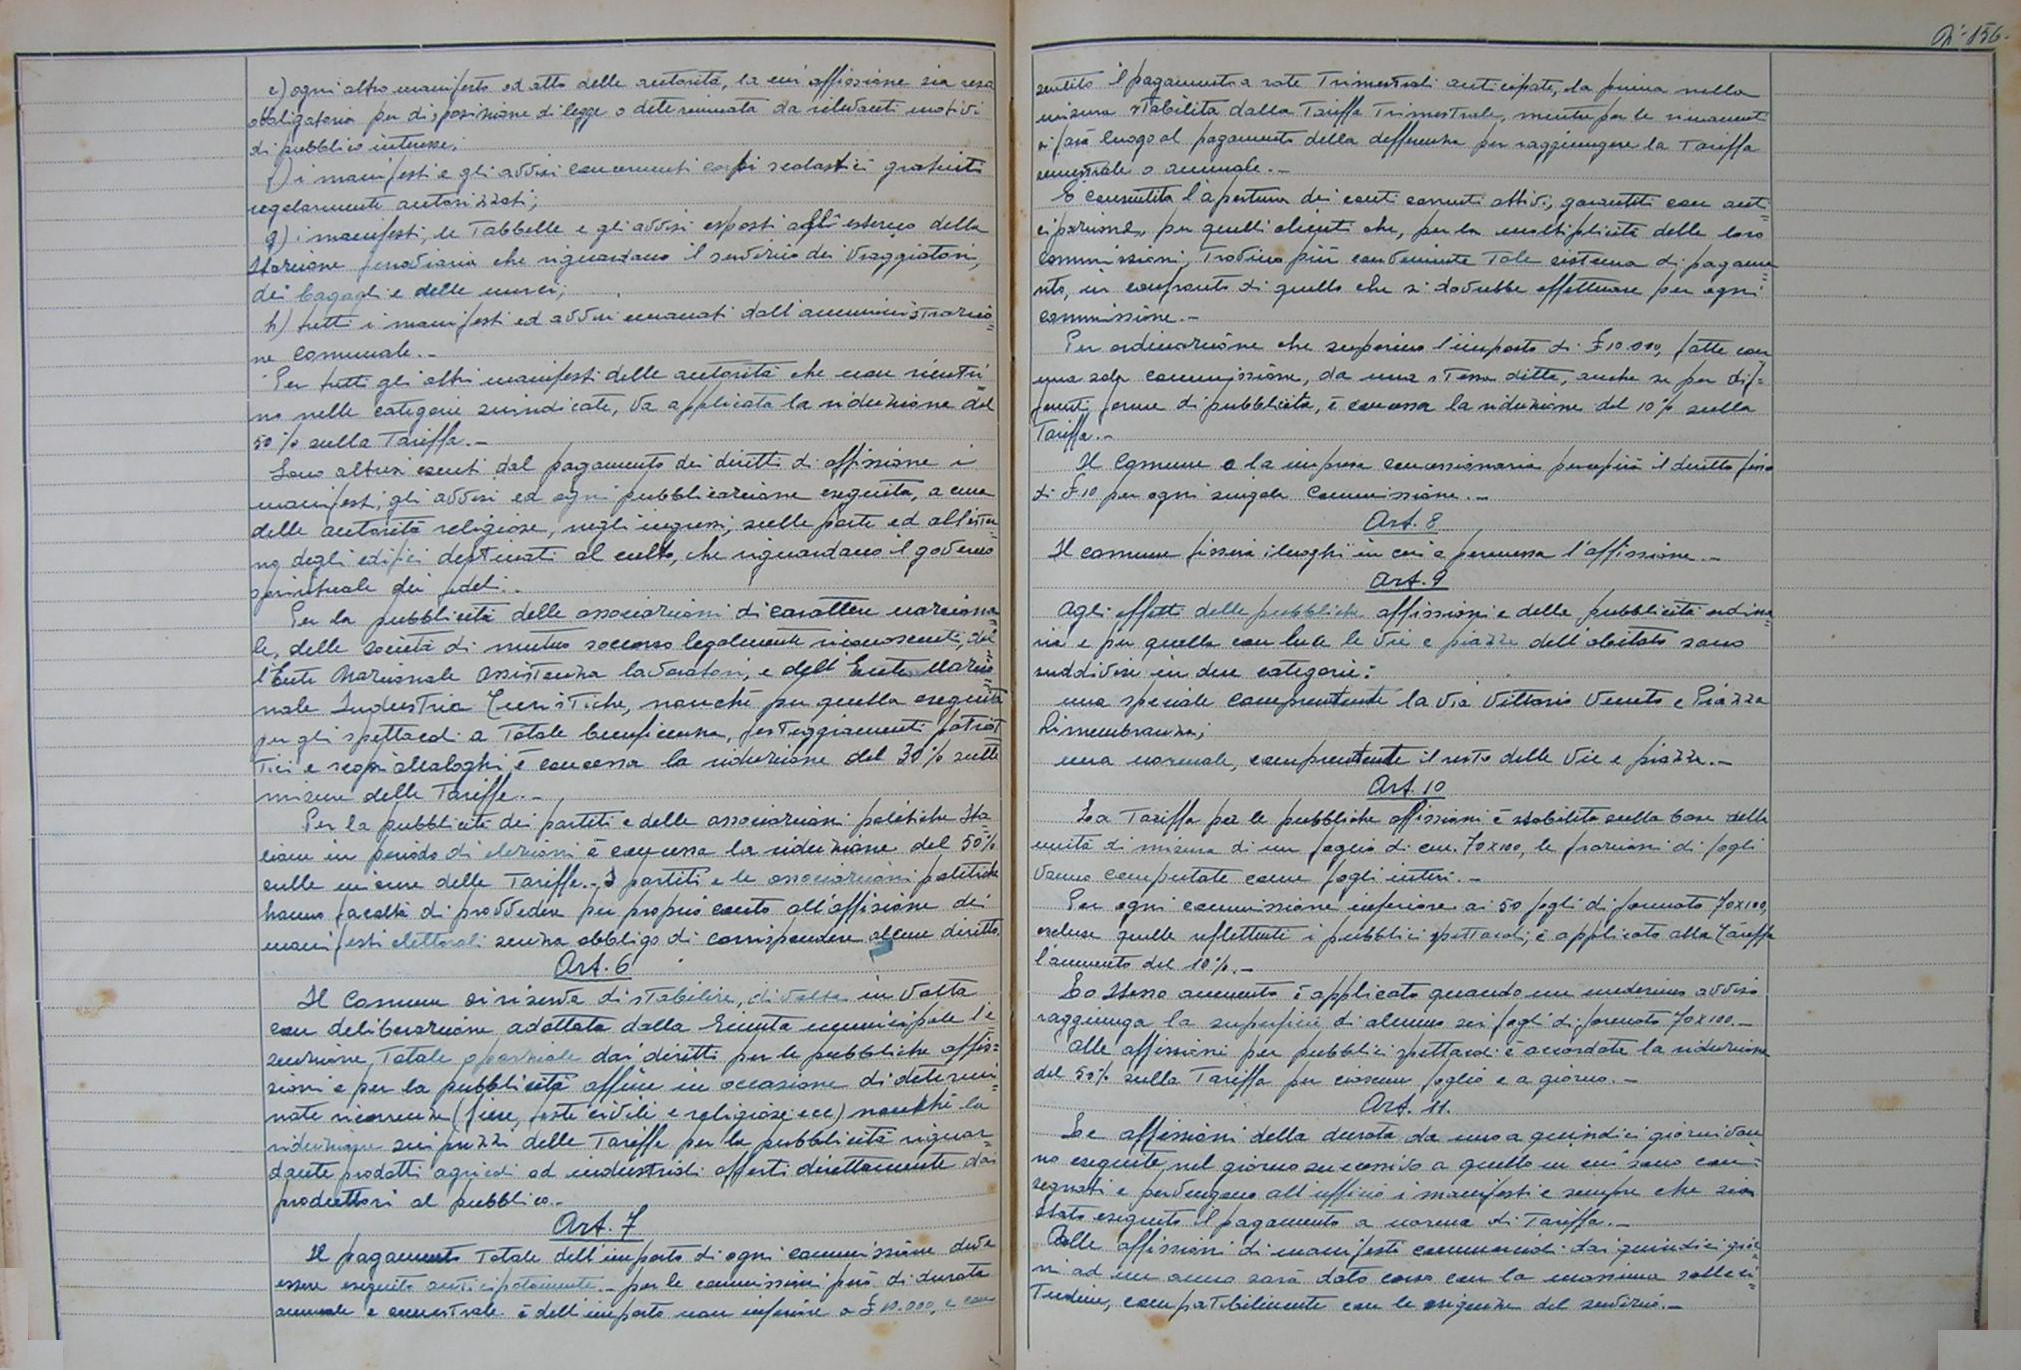 e) ogni altro manifesto ed atto delle autorità, la cui affissione sia resa
obbligatoria per disposizione di legge o determinata da rilevanti motivi
di pubblico interesse;
f) i manifesti e gli avvisi concernenti corsi scolastici gratuiti
regolarmente autorizzati;
g) i manifesti, le Tabbelle e gli avvisi esposti all'esterno della
Stazione ferroviaria che riguardano il servizio dei viaggiatori,
dei bagagli e delle merci;
h) tutti i manifesti ed avvisi emanati dall'amministrazio=
ne Comunale.-
Per tutti gli altri manifesti delle autorità che non rientri=
no nelle categorie suindicate, va applicata la riduzione del
50% sulla Tariffa.-
Sono altresì esenti dal pagamento dei diritti di affissione i
manifesti, gli avvisi ed ogni pubblicazione eseguita, a cura
delle autorità religiose, negli ingressi, sulle porte ed all'ester=
no degli edifici destinati al culto, che riguardano il governo
spirituale dei fedeli.
Per la pubblicità delle associazioni di carattere naziona=
le, delle società di mutuo soccorso legalmente riconosciute, del=
l'Ente Nazionale Assistenza lavoratori, e dell'Ente Nazio=
nale Industrie Turistiche, nonché per quella eseguita
per gli spettacoli a Totale beneficenza, festeggiamenti patriot
Tici e scopi analoghi è concessa la riduzione del 30% sulle
misure delle Tariffe.-
Per la pubblicità dei partiti e delle associazioni politiche Ita=
liane in periodo di elezioni è concessa la riduzione del 50%
sulle misure delle Tariffe.- I partiti e le associazioni politiche
hanno facoltà di provvedere per proprio conto all'affissione dei
manifesti elettorali senza obbligo di corrispondere alcun diritto.
Art. 6
Il Comune si riserva di stabilire, di volta in volta
con deliberazione adottata dalla Giunta municipale l'e
senzione Totale o parziale dai diritti per le pubbliche affis=
sioni e per la pubblicità affine in occasione di determi=
nate ricorrenze (fiere, feste civili e religiose ecc) nonché la
riduzione sui prezzi delle Tariffe per la pubblicità riguar=
dante prodotti agricoli ed industriali offerti direttamente dai
produttori al pubblico.-
Art. 7
Il pagamento Totale dell'importo di ogni commissione deve
essere eseguito anticipatamente.- per le commissioni però di durata
annuale e semestrale è dell'importo non inferiore a £ 10.000, è con
N° 156.
sentito il pagamento a rate Trimestrali anticipate, la prima nella
misura stabilita dalla Tariffa Trimestrale, mentre per le rimanenti
si farà luogo al pagamento della differenza per raggiungere la Tariffa
semestrale o annuale.-
È consentita l'apertura dei conti correnti attivi, garantiti con anti=
cipazione, per quelli clienti che, per la molteplicità delle loro
commissioni, Trovino più conveniente Tale sistema di pagame=
nto, in confronto di quello che si dovrebbe effettuare per ogni
commissione.-
Per ordinazione che superino l'importo di £ 10.000, fatte con
una sola commissione, da una stessa ditta, anche se per dif=
ferenti forme di pubblicità, è concessa la riduzione del 10% sulla
Tariffa.-
Il Comune o la impresa concessionaria percepirà il diritto fisso
di £ 10 per ogni singola commissione.-
Art. 8
Il comune fisserà i luoghi in cui è permessa l'affissione.-
Art. 9
Agli effetti delle pubbliche affissioni e della pubblicità ordina=
ria e per quella con luce le vie e piazze dell'abitato sono
suddivise in due categorie:
una speciale comprendente la Via Vittorio Veneto e Piazza
Rimembranza;
una normale, comprendente il resto delle vie e piazze.-
Art. 10
La Tariffa per le pubbliche affissioni è stabilita sulla base della
unità di misura di un foglio di cm. 70x100, le frazioni di fogli
vanno computate come fogli interi.-
Per ogni commissione inferiore ai 50 fogli di formato 70x100,
escluse quelle riflettenti i pubblici spettacoli, è applicato alla Tariffa
l'aumento del 10%.-
Lo stesso aumento è applicato quando un medesimo avviso
raggiunga la superficie di almeno sei fogli di formato 70x100.-
Alle affissioni per pubblici spettacoli è accordata la riduzione
del 50% sulla Tariffa per ciascun foglio e a giorno.-
Art. 11.
Le affissioni della durata da uno a quindici giorni van
no eseguite nel giorno successivo a quello in cui sono con=
segnati e pervengano all'ufficio i manifesti e sempre che sia
stato eseguito il pagamento a norma di Tariffa.-
Alle affissioni di manifesti commerciali dai quindici gior=
ni ad un anno sarà dato corso con la massima solleci=
Tudine, compatibilmente con le esigenze del servizio.-